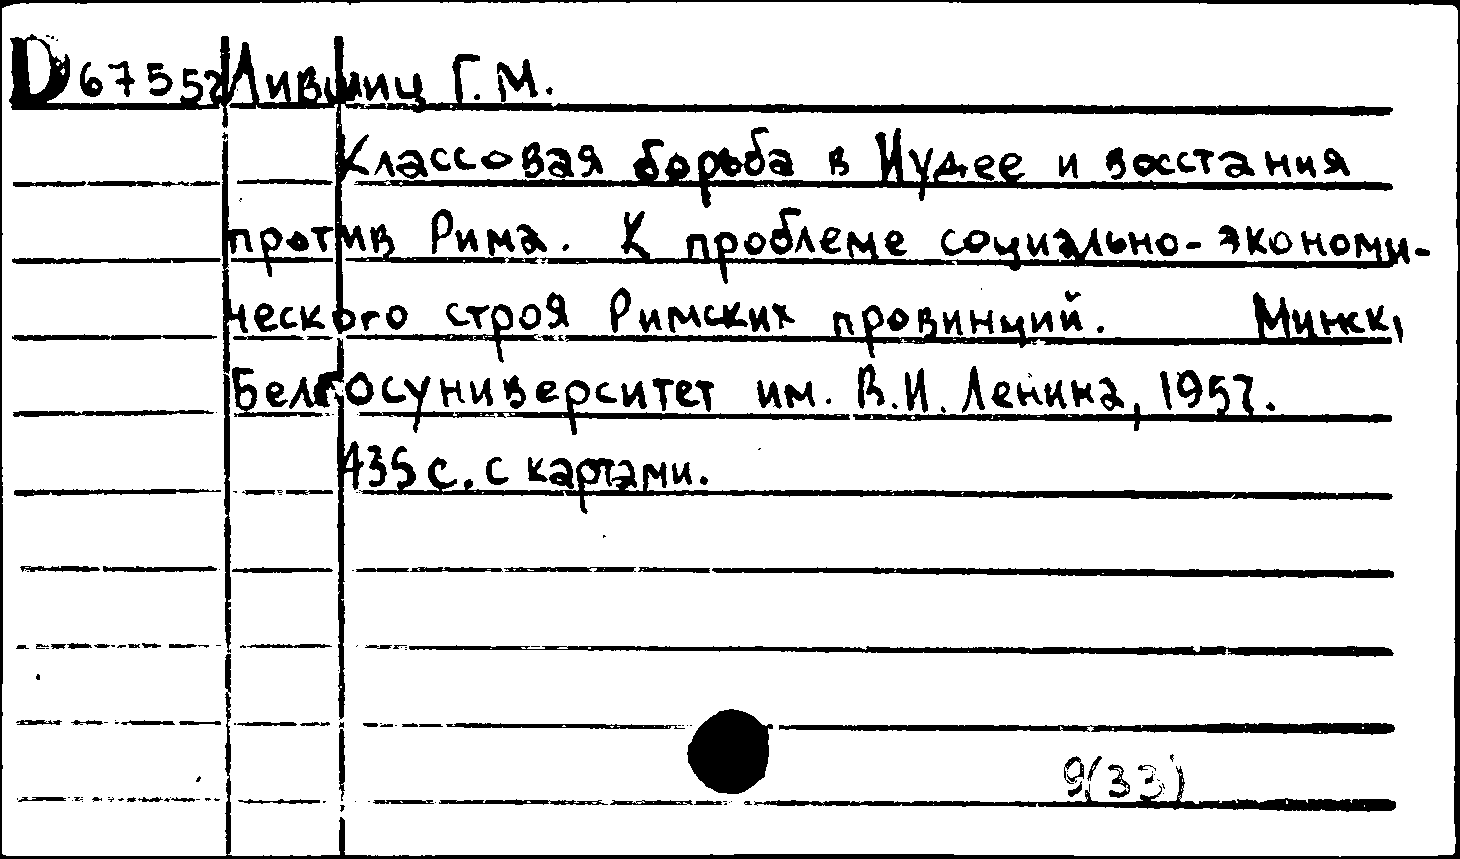 D 67552 Лившиц Г. М.
Классовая борьба в Иудее и восстания
против Рима. К проблеме социально-экономи-
ческого строя Римских провинций. Минск,
Белгосуниверситет им. В.И. Ленина, 1957.
435 с. с картами.
9(33)